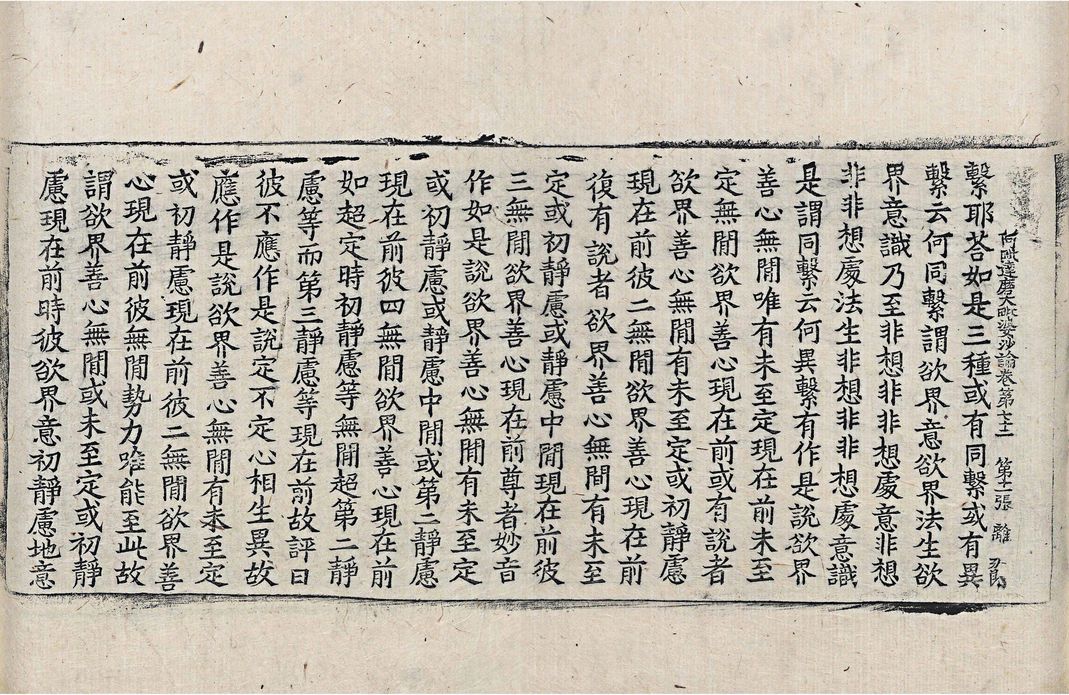 阿毗達磨大毗婆沙論卷第七十二 第十張 離
繫耶荅如是三種或有同繫或有異
繫云何同繫謂欲界意欲界法生欲
界意識乃至非想非非想處意非想
非非想處法生非想非非想處意識
是謂同繫云何異繫有作是說欲界
善心無閒唯有未至定現在前未至
定無閒欲界善心現在前或有說者
欲界善心無閒有未至定或初靜慮
現在前彼二無閒欲界善心現在前
復有說者欲界善心無間有未至
定或初靜慮或靜慮中閒現在前彼
三無閒欲界善心現在前尊者妙音
作如是說欲界善心無閒有未至定
或初靜慮或靜慮中閒或第二靜慮
現在前彼四無閒欲界善心現在前
如超定時初靜慮等無閒超第二靜
慮等而第三靜慮等現在前故評曰
彼不應作是說定不定心相生異故
應作是說欲界善心無閒有未至定
或初靜慮現在前彼二無閒欲界善
心現在前彼無閒勢力唯能至此故
謂欲界善心無閒或未至定或初靜
慮現在前時彼欲界意初靜慮地意